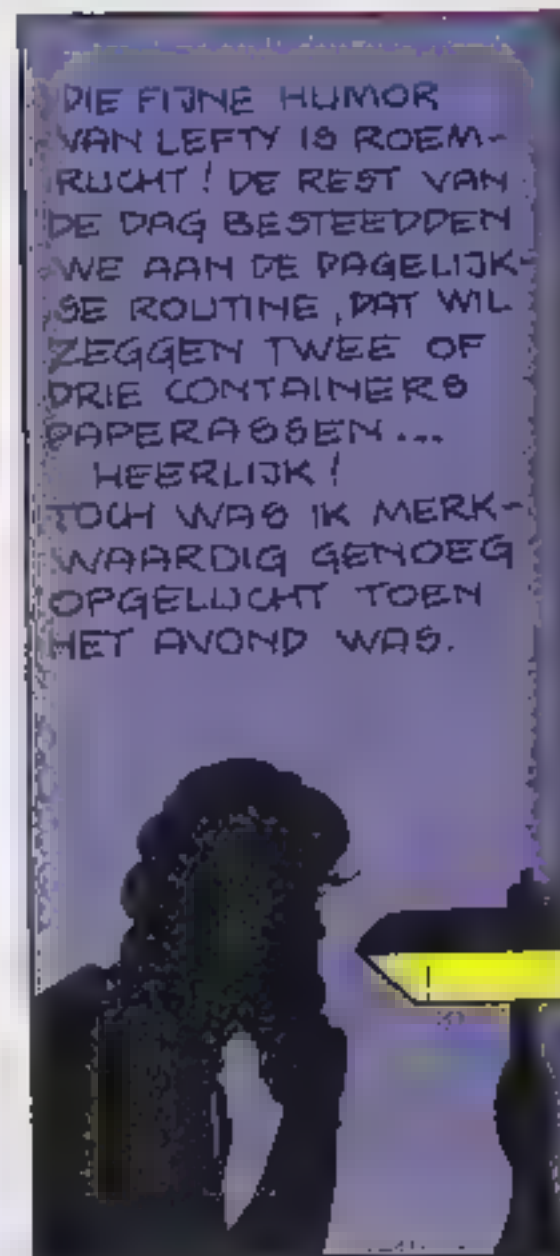 DIE FIJNE HUMOR
VAN LEFTY IS ROEM-
RUCHT! DE REST VAN
DE DAG BESTEEDDEN
WE AAN DE DAGELIJK-
SE ROUTINE, DAT WIL
ZEGGEN TWEE OF
DRIE CONTAINERS
PAPERASSEN...
HEERLIJK!
TOCH WAS IK MERK-
WAARDIG GENOEG
OPGELUCHT TOEN
HET AVOND WAS.